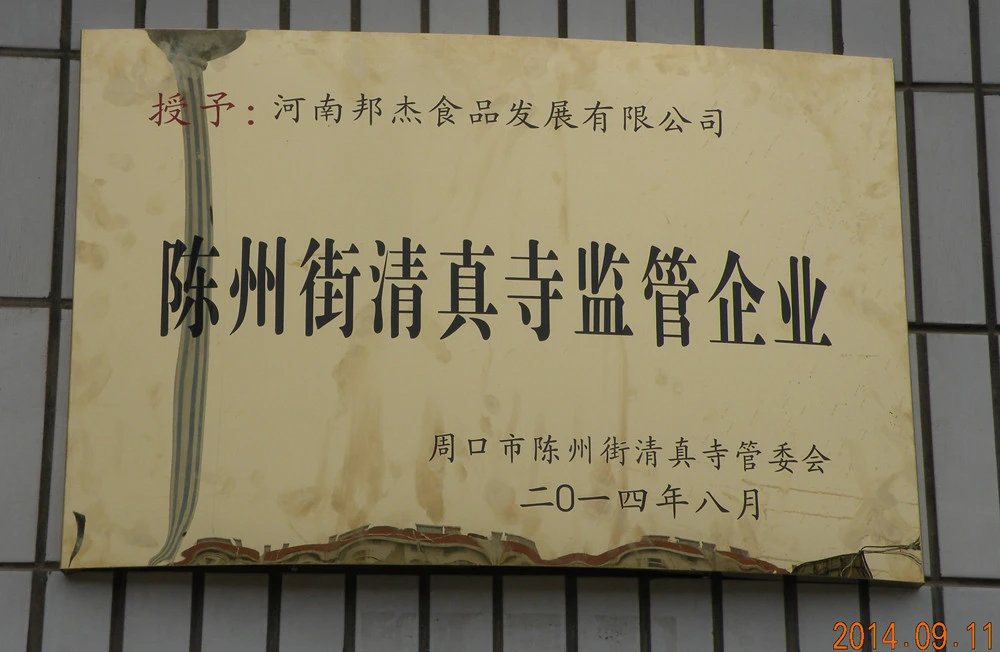 授予：河南邦杰食品发展有限公司
陈州街清真寺监管企业
周口市陈州街清真寺管委会
二〇一四年八月
2014.09.11